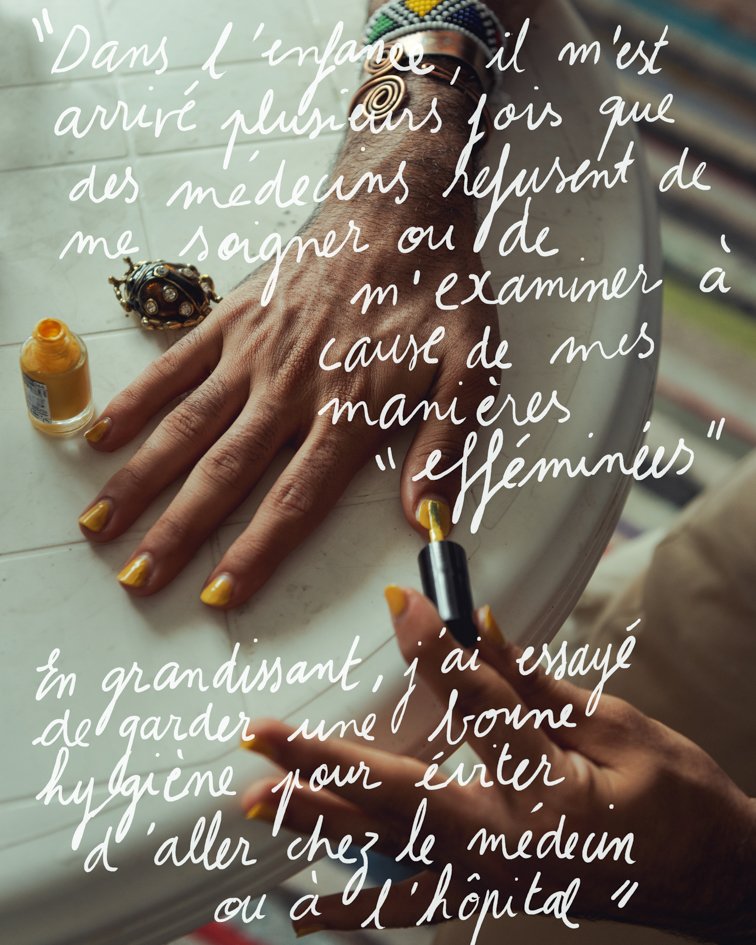 "Dans l'enfance, il m'est
arrivé plusieurs fois que
des médecins refusent de
me soigner ou de
m'examiner à
cause de mes
manières
"efféminées"
En grandissant, j'ai essayé
de garder une bonne
hygiène pour éviter
d'aller chez le médecin
ou à l'hôpital"